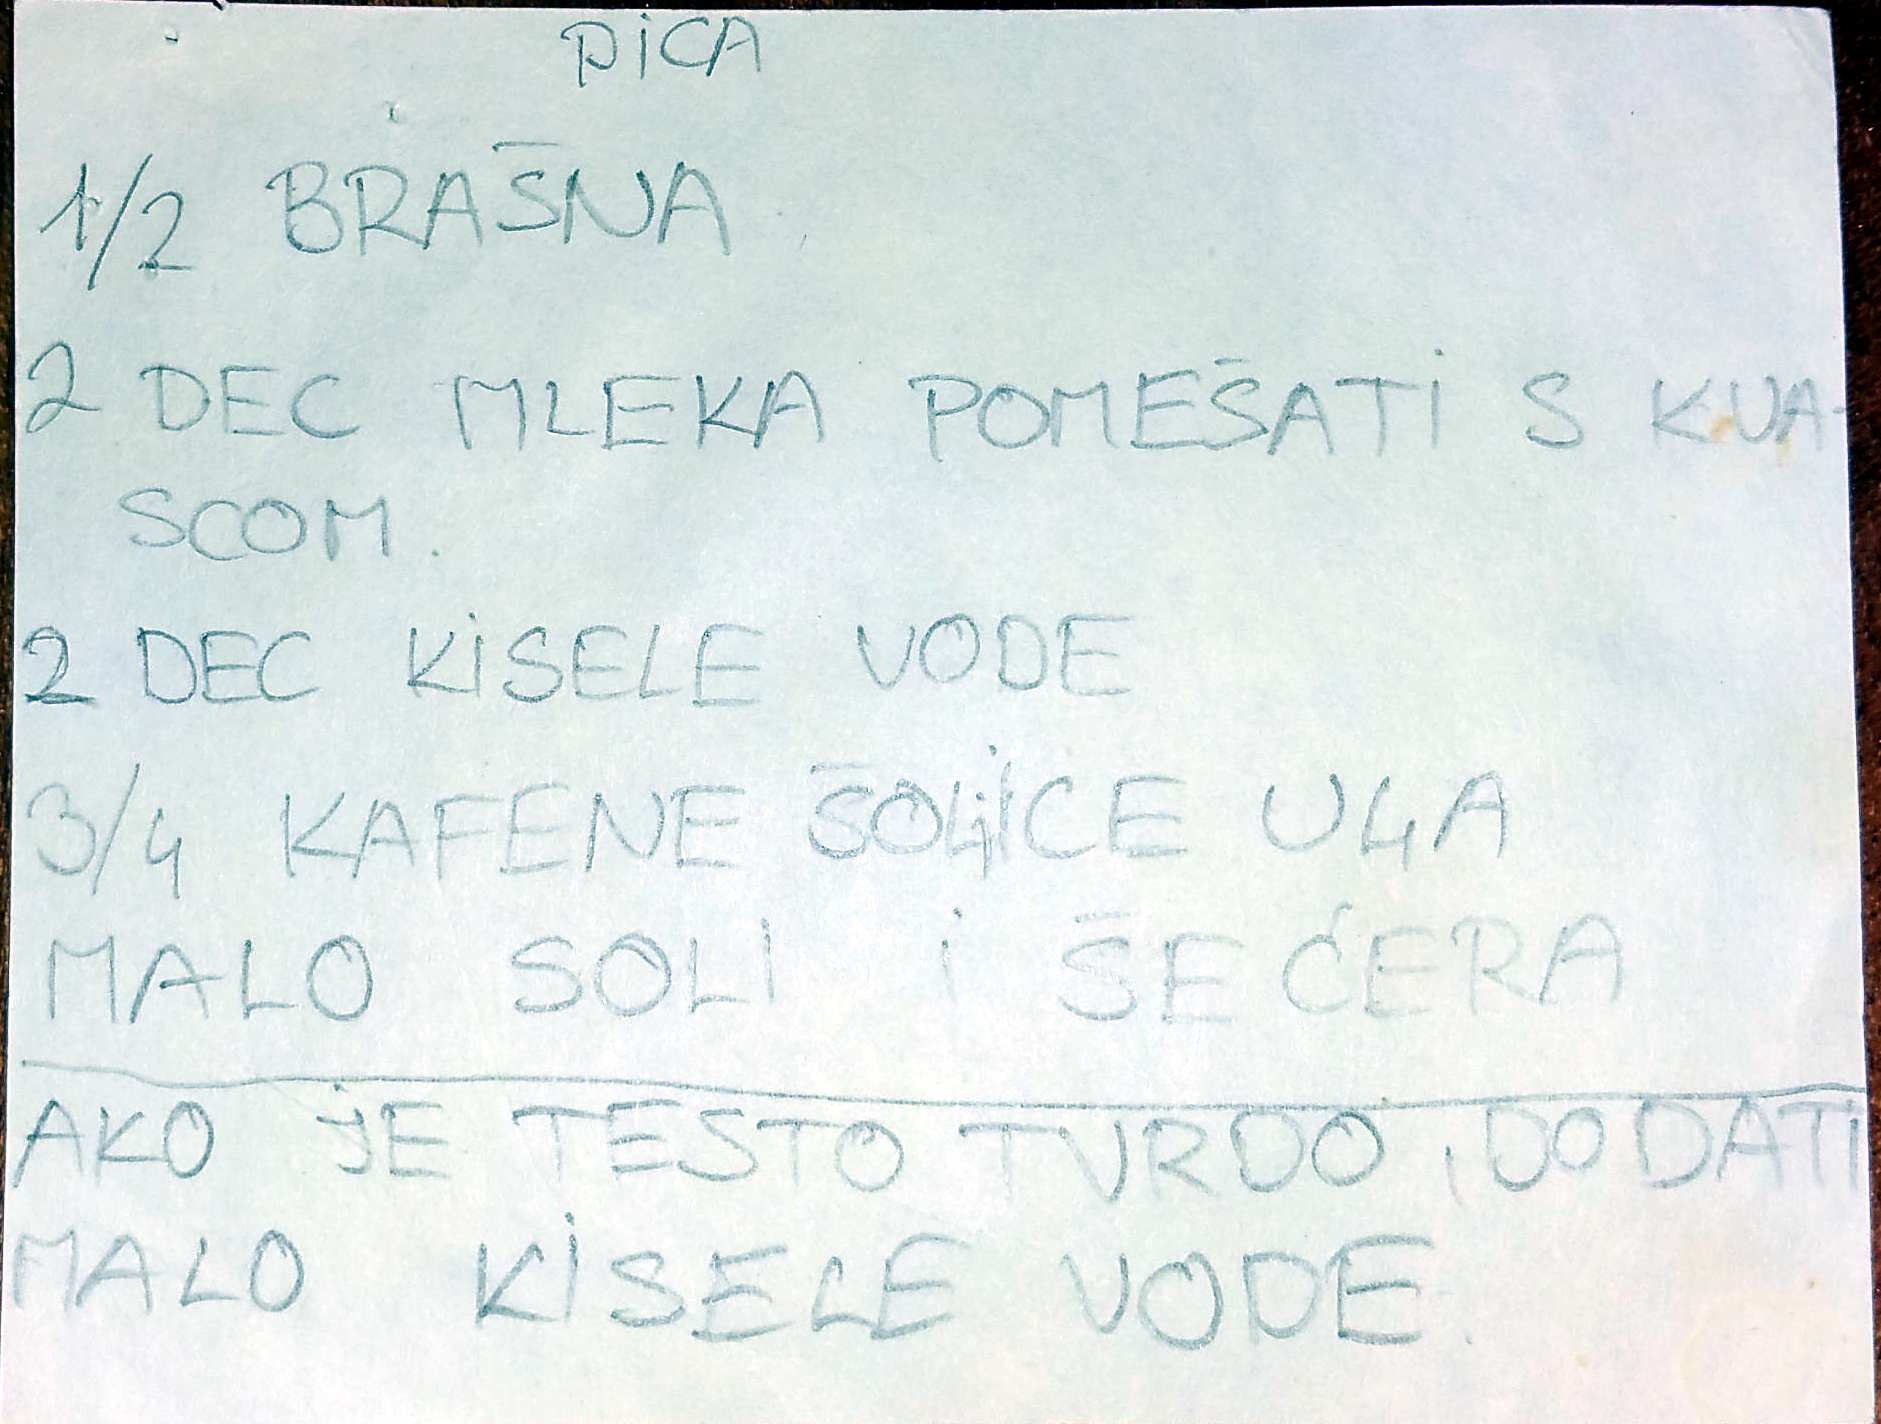 PiCA
1/2 BRAŠNA
2 DEC MLEKA POMEŠATi S KVA-
SCOM.
2 DEC KiSELE VODE
3/4 KAFENE ŠOLjiCE ULjA
MALO SOLI i ŠEĆERA
AKO JE TESTO TVRDO, DODATI
MALO KiSELE VODE.